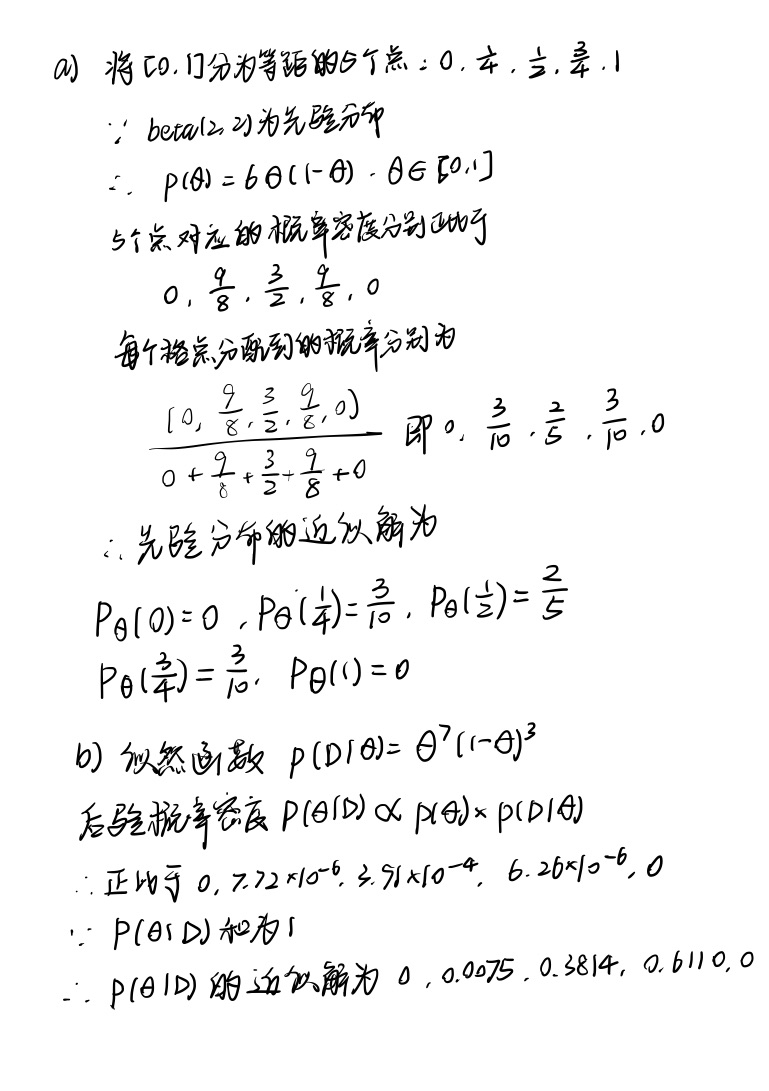 a) 将[0,1]分为等距的5个点：0, 1/4, 1/2, 3/4, 1
∵ beta(2,2)为先验分布
∴ p(θ) = 6θ(1-θ), θ∈[0,1]
5个点对应的概率密度分别正比于
0, 9/8, 3/2, 9/8, 0
每个格点分配到的概率分别为
[0, 9/8, 3/2, 9/8, 0] / (0 + 9/8 + 3/2 + 9/8 + 0) 即 0, 3/10, 2/5, 3/10, 0
∴ 先验分布的近似解为
Pθ(0)=0, Pθ(1/4)=3/10, Pθ(1/2)=2/5
Pθ(3/4)=3/10, Pθ(1)=0
b) 似然函数 p(D|θ)= θ^7(1-θ)^3
后验概率密度 P(θ|D) ∝ p(θ)×p(D|θ)
∴ 正比于 0, 7.72×10^-6, 3.91×10^-4, 6.26×10^-6, 0
∵ P(θ|D)和为1
∴ P(θ|D)的近似解为 0, 0.0075, 0.3814, 0.6110, 0